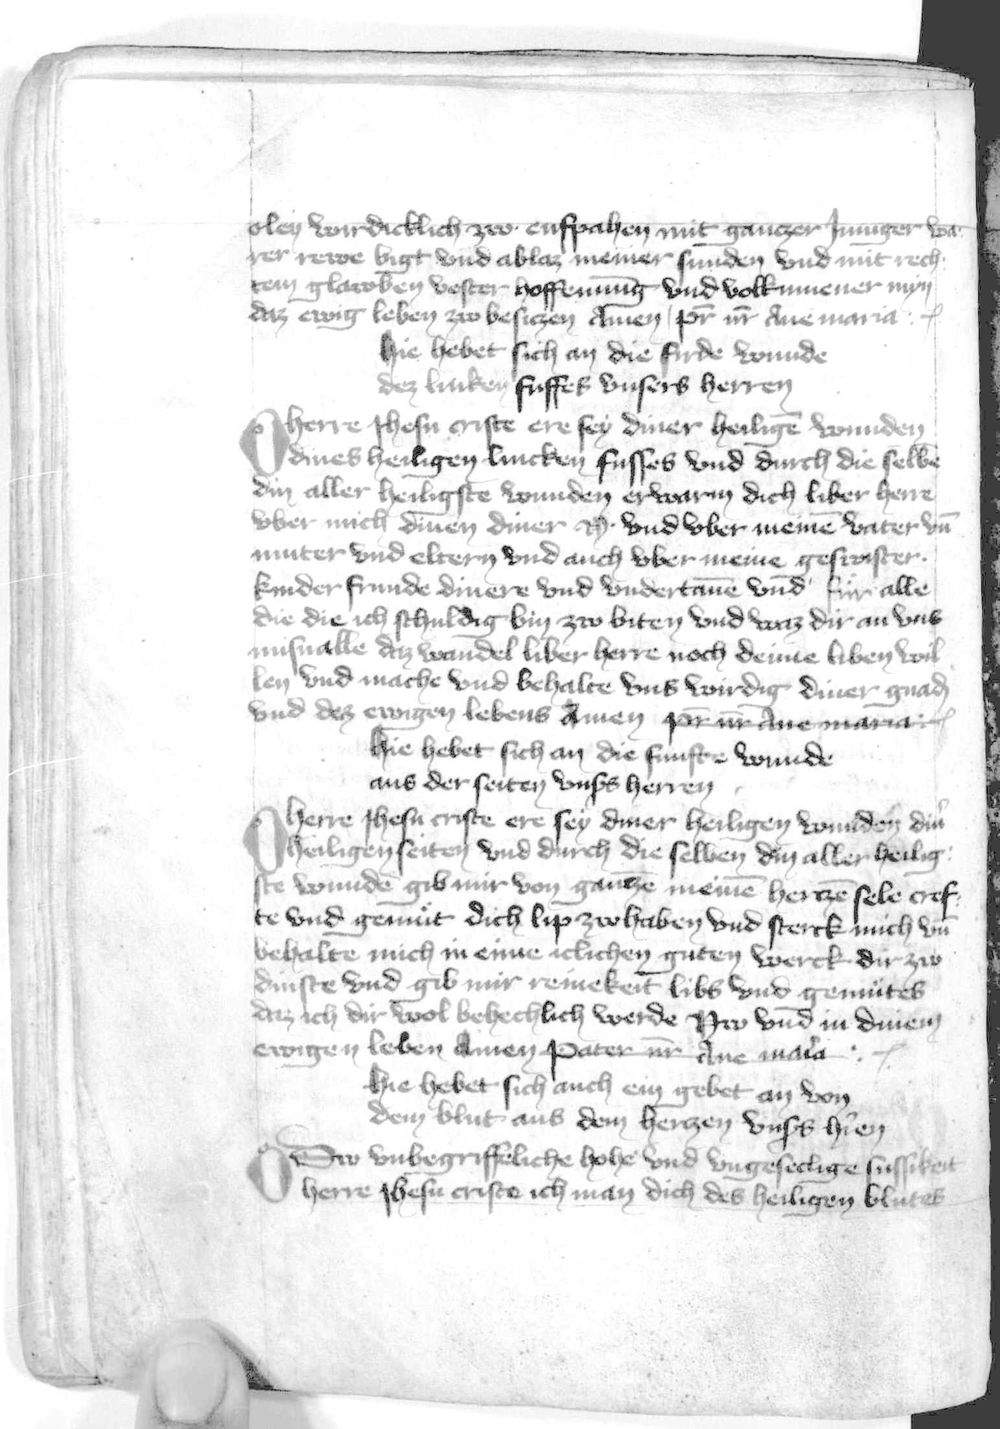 oley wirdicklich zwo enpfahen mit ganczer Inniger wa-
rer rewe bigt vnd ablaz meiner sunden vnd mit rech-
tem glawben vester hoffenūng vnd volkumener myn
daz ewig leben zwo besiczen Amen pr̄ nr̄ Aue maria
hie hebet sich an die firde wunde
dez linken fusses vnsers herren
O herre Jhesu criste ere sey diner heiligē wunden
dines heiligen lincken fusses vnd durch die selbē
din aller heiligste wunden erwarm dich liber herre
vber mich dinen diner N. vnd vber meinē vater vn̄
muter vnd eltern vnd auch vber meine geswister
kinder frunde dinere vnd vndertanē vnd für alle
die die ich schuldig bin zwo biten vnd waz dir an vns
misualle daz wandel liber herre noch deime liben wil
len vnd mache vnd behalte vns wirdig diner gnad
vnd dez ewigen lebens Amen pr̄ nr̄ Aue maria
hie hebet sich an die funfte wunde
aus der seiten vnsers herren
O herre Jhesu criste ere sey diner heiligen wunden din̄
heiligen seiten vnd durch die selben din aller heilig-
ste wunde gib mir von ganczē meinē herczē sele cref-
te vnd gemüt dich lip zwo haben vnd sterck mich vn̄
behalte mich in eime iclichen guten werck dir zwo
dinste vnd gib mir reinekeit libs vnd gemütes
daz ich dir wol behechlich werde Nw vnd in dinem
ewigen leben Amen Pater nr̄ Aue maria
hie hebet sich auch ein gebet an von
dem blut aus dem herczen vnsers hr̄en
O Dw vnbegriffeliche hohe vnd vngeseclige sussikeit
herre Jhesu criste ich man dich des heiligen blutes